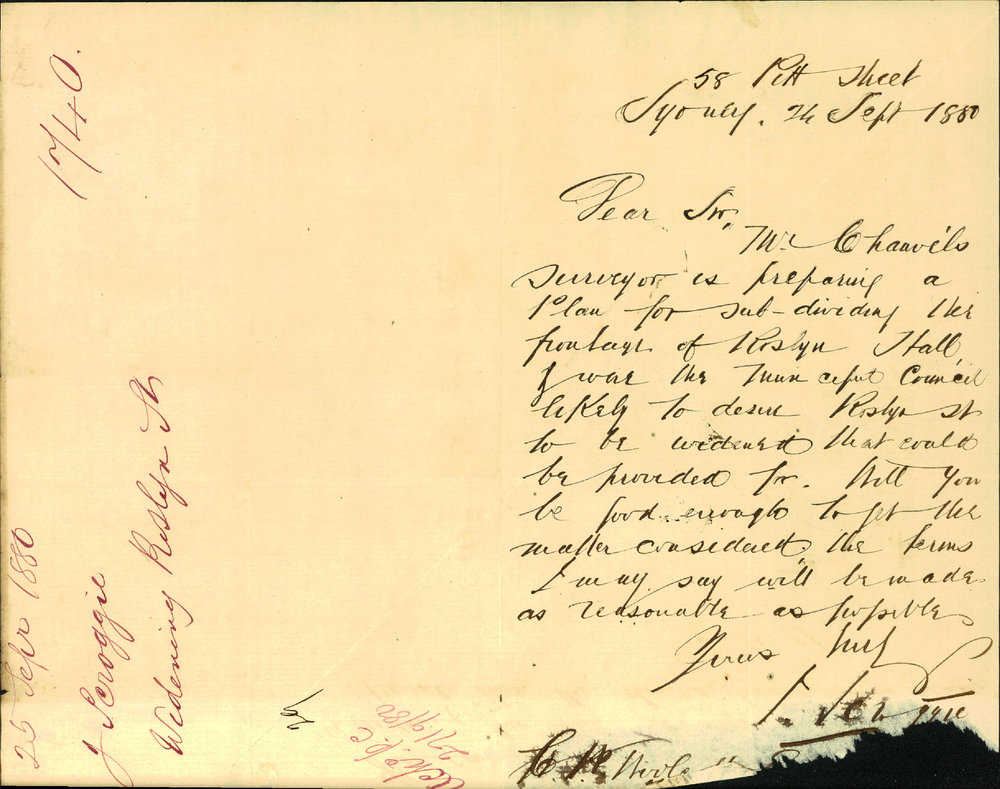 58 Pitt Street
Sydney, 24 Sept 1880
Dear Sir,
Mr Chauvel's
surveyor is preparing a
Plan for sub-dividing the
frontage of Roslyn Hall,
if were the Municipal Council
likely to desire Roslyn St
to be widened that could
be provided for. Will you
be good enough to get the
matter considered, the terms
I may say will be made
as reasonable as possible
Yours truly
J Scroggie
C. H. Woolc
1740.
25 Sepr 1880
J Scroggie
Widening Roslyn St
27/9/80